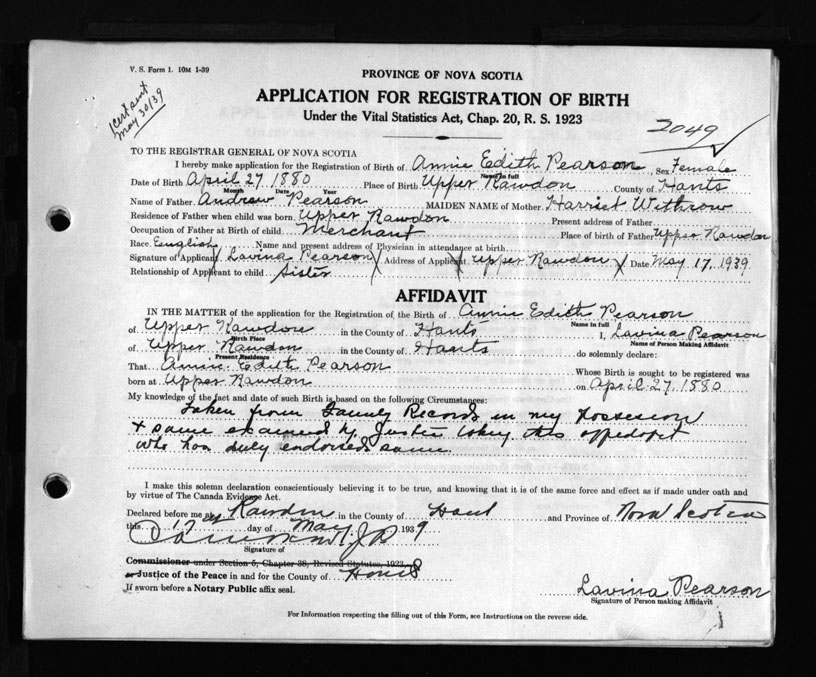 V. S. Form 1. 10M 1-39
PROVINCE OF NOVA SCOTIA
APPLICATION FOR REGISTRATION OF BIRTH
Under the Vital Statistics Act, Chap. 20, R. S. 1923
Cert sent
May 30/39
2049
TO THE REGISTRAR GENERAL OF NOVA SCOTIA
I hereby make application for the Registration of Birth of Annie Edith Pearson, Sex Female
Name in full
Date of Birth April 27 1880 Place of Birth Upper Rawdon County of Hants
Month Date Year
Name of Father Andrew Pearson MAIDEN NAME of Mother Harriet Withrow
Residence of Father when child was born Upper Rawdon Present address of Father
Occupation of Father at Birth of child Merchant Place of birth of Father Upper Rawdon
Race English Name and present address of Physician in attendance at birth
Signature of Applicant Lavina Pearson Address of Applicant Upper Rawdon Date May 17, 1939
Relationship of Applicant to child Sister
AFFIDAVIT
IN THE MATTER of the application for the Registration of the Birth of Annie Edith Pearson
Name in full
of Upper Rawdon in the County of Hants I, Lavina Pearson
Birth Place Name of Person Making Affidavit
of Upper Rawdon in the County of Hants do solemnly declare:
Present Residence
That Annie Edith Pearson Whose Birth is sought to be registered was
born at Upper Rawdon on April 27, 1880
My knowledge of the fact and date of such Birth is based on the following Circumstances:
Taken from Family Records in my possession
& same examined by Justice this
who has duly endorsed same.
I make this solemn declaration conscientiously believing it to be true, and knowing that it is of the same force and effect as if made under oath and
by virtue of The Canada Evidence Act.
Declared before me at Rawdon in the County of Hants and Province of Nova Scotia
this 17 day of May 1939
J.P.
Signature of
Commissioner under Section 5, Chapter 38, Revised Statutes, 1923,
or Justice of the Peace in and for the County of Hants
If sworn before a Notary Public affix seal.
Lavina Pearson
Signature of Person making Affidavit
For Information respecting the filling out of this Form, see Instructions on the reverse side.